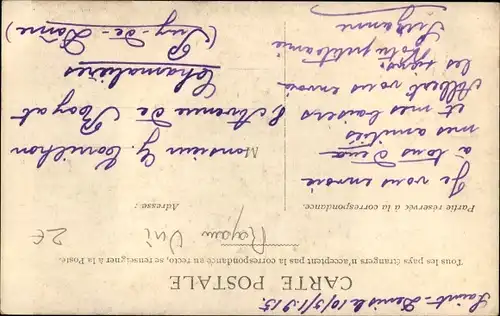 Saint-Denis le 10/5/1915.
CARTE POSTALE
Tous les pays étrangers n'acceptent pas la correspondance au recto, se renseigner à la Poste.
2€
Partie réservée à la correspondance.
Adresse :
Je vous envoie
à tous deux
mes amitiés
et mes baisers
Albert vous envoie
les siens.
Votre petite amie
Suzanne
M
Monsieur G. Cornilhon
8 Avenue de Royat
Chamalières
(Puy-de-Dôme)